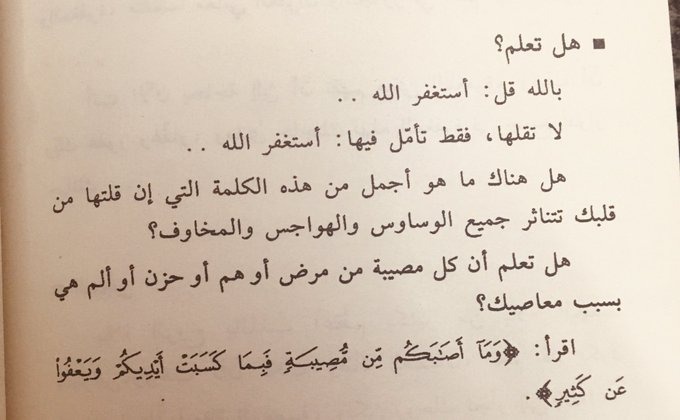 ■ هل تعلم؟
بالله قل: أستغفر الله ..
لا تقلها، فقط تأمّل فيها: أستغفر الله ..
هل هناك ما هو أجمل من هذه الكلمة التي إن قلتها من
قلبك تتناثر جميع الوساوس والهواجس والمخاوف؟
هل تعلم أن كل مصيبة من مرض أو هم أو حزن أو ألم هي
بسبب معاصيك؟
اقرأ: ﴿وَمَآ أَصَٰبَكُم مِّن مُّصِيبَةٍ فَبِمَا كَسَبَتْ أَيْدِيكُمْ وَيَعْفُوا۟
عَن كَثِيرٍ﴾.